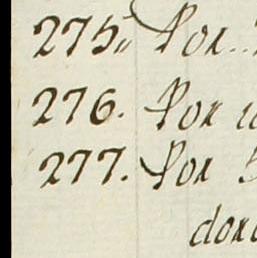 275. Por..
276. Por
277. Por